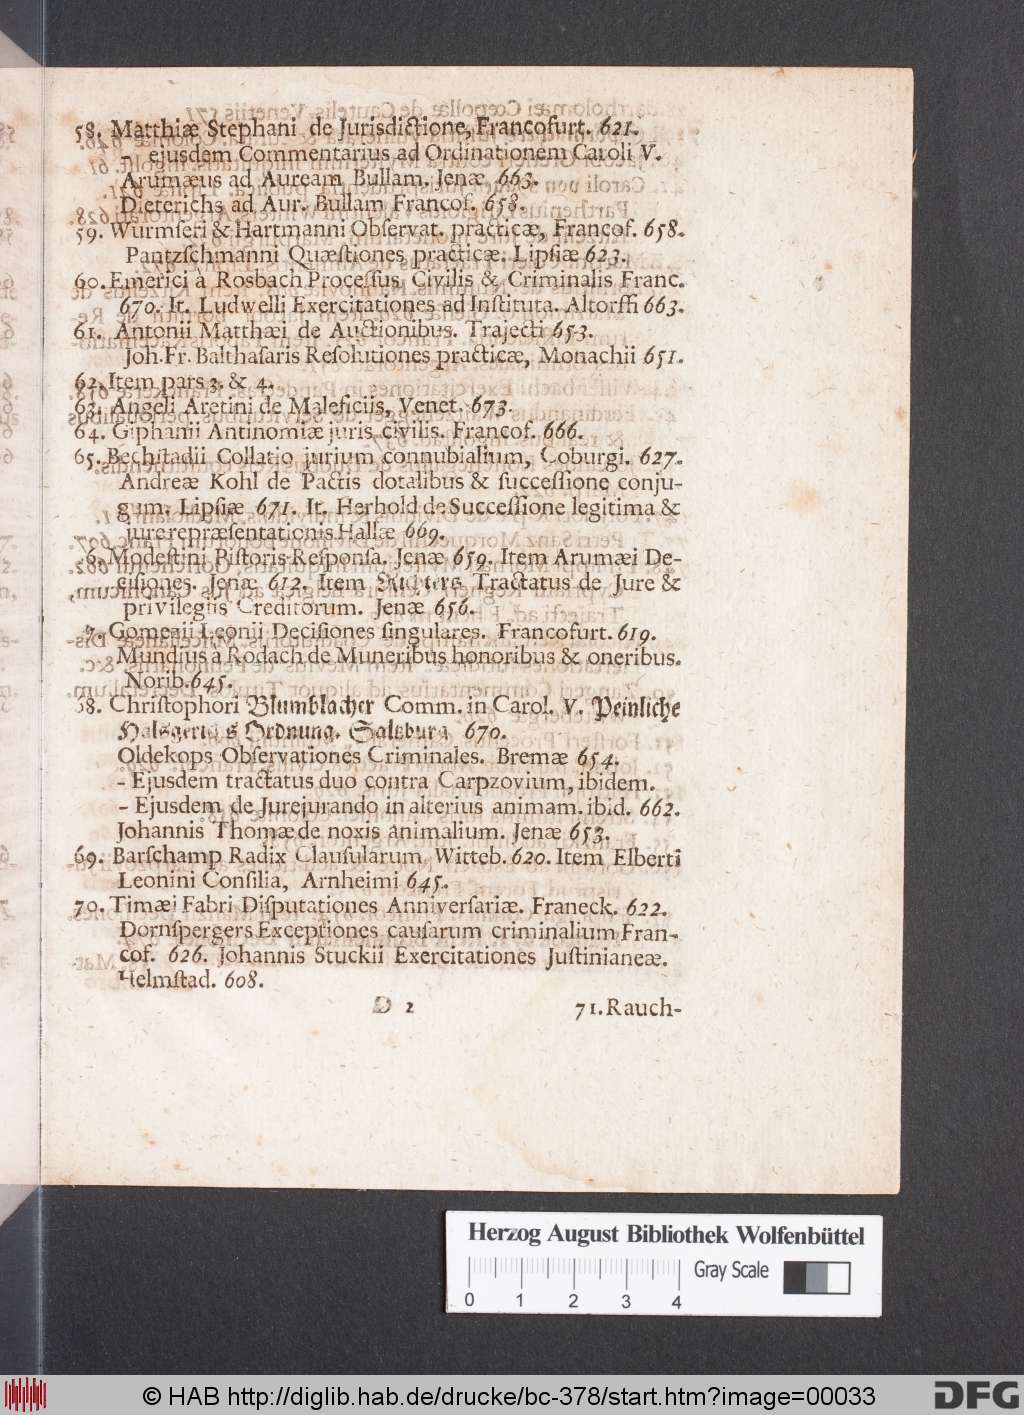 58. Matthiæ Stephani de Jurisdictione, Francofurt. 621.
- ejusdem Commentarius ad Ordinationem Caroli V.
Arumæus ad Auream Bullam. Jenæ 663.
Dieterichs ad Aur. Bullam Francof. 658.
59. Wurmseri & Hartmanni Observat. practicæ, Francof. 658.
Pantzschmanni Quæstiones practicæ. Lipsiæ 623.
60. Emerici à Rosbach Processus, Civilis & Criminalis Franc.
670. It. Ludwelli Exercitationes ad Instituta. Altorffi 663.
61. Antonii Matthæi de Auctionibus. Trajecti 653.
Joh. Fr. Balthasaris Resolutiones practicæ, Monachii 651.
62. Item pars 3. & 4.
63. Angeli Aretini de Maleficiis, Venet. 673.
64. Giphanii Antinomiæ juris civilis. Francof. 666.
65. Bechstadii Collatio jurium connubialium, Coburgi. 627.
Andreæ Kohl de Pactis dotalibus & successione conju-
gum. Lipsiæ 671. It. Herhold de Successione legitima &
jure repræsentationis Hallæ 669.
6. Modestini Pistoris Responsa. Jenæ 659. Item Arumæi De-
cisiones. Jenæ 612. Item Richters Tractatus de Jure &
privilegiis Creditorum. Jenæ 656.
7. Gomezii Leonii Decisiones singulares. Francofurt. 619.
Mundius à Rodach de Muneribus honoribus & oneribus.
Norib. 645.
68. Christophori Blumblacher Comm. in Carol. V. Peinliche
Halsgerichts Ordnung. Salzburg 670.
Oldekops Observationes Criminales. Bremæ 654.
- Ejusdem tractatus duo contra Carpzovium, ibidem.
- Ejusdem de Jurejurando in alterius animam. ibid. 662.
Johannis Thomæ de noxis animalium. Jenæ 653.
69. Barschamp Radix Clausularum Witteb. 620. Item Elberti
Leonini Consilia, Arnheimi 645.
70. Timæi Fabri Disputationes Anniversariæ. Franeck. 622.
Dornspergers Exceptiones causarum criminalium Fran-
cof. 626. Johannis Stuckii Exercitationes Justinianeæ.
Helmstad. 608.
D 2 71. Rauch-
Herzog August Bibliothek Wolfenbüttel
Gray Scale
0 1 2 3 4
© HAB http://diglib.hab.de/drucke/bc-378/start.htm?image=00033
DFG